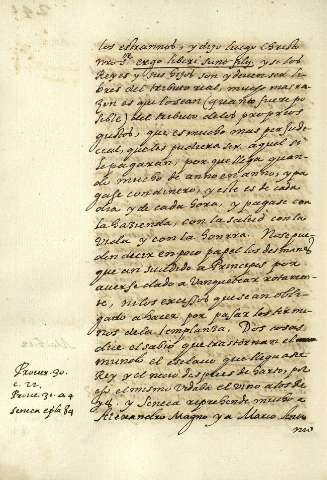 los estrannos, y dijo luego Christo
nro Sr. ergo liberi sunt filij, y si los
Reyes y sus hijos son y deven ser li-
bres del tributo real, mucho mas ra-
zon es que lo sean (quanto fuere po-
sible) del tributo de los proprios
gustos, que es mucho mas perjudi-
cial, que las pudiera ser, aquel si
le pagaran, porque llega quan-
do mucho de anno en anno, y pa-
gase con dinero, y este es de cada
dia y de cada hora, y pagase con
la hazienda, con la salud con la
vida y con la honrra. No se pue-
den decir en poco papel los desmanes
que an sucedido a Principes por
averse dado a vanquetear rotamen-
te, ni los excessos que se an obli-
gado a hacer por pasar los termi-
nos de la templanza. Dos cosas
dice el sabio que trastornan el
mundo el esclavo que llega a ser
Rey y el necio despues de harto, por
eso el mismo vedava el vino a los Re-
yes. y Seneca reprehende mucho a
Alexandro Magno y a Marco Anto-
nio
Prover. 30.
c. 22.
Prove. 31. a 4
Seneca epla 84